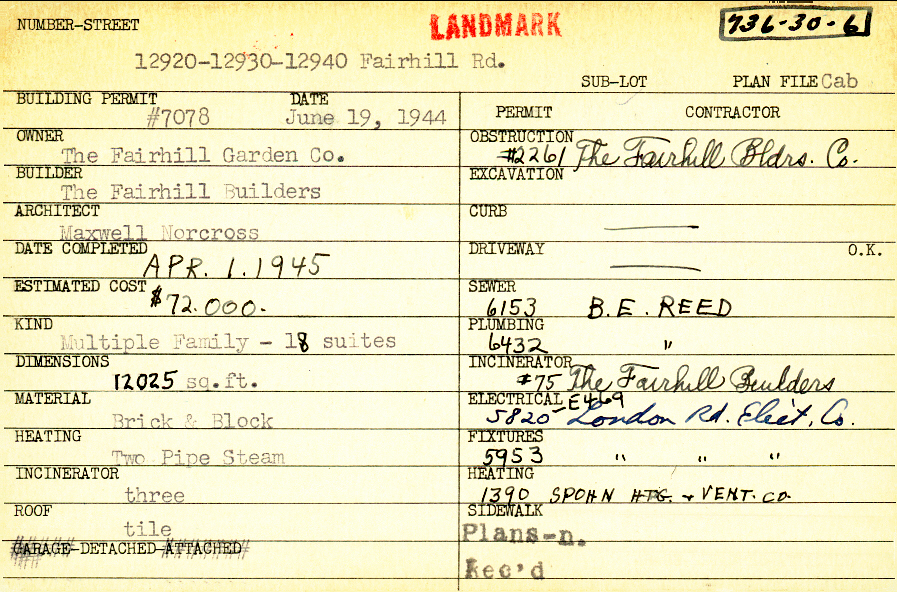 NUMBER-STREET
LANDMARK
736-30-6
12920-12930-12940 Fairhill Rd.
SUB-LOT
PLAN FILE Cab
BUILDING PERMIT DATE
#7078 June 19, 1944
OWNER
The Fairhill Garden Co.
BUILDER
The Fairhill Builders
ARCHITECT
Maxwell Norcross
DATE COMPLETED
APR. 1. 1945
ESTIMATED COST
$72.000.
KIND
Multiple Family - 18 suites
DIMENSIONS
12025 sq.ft.
MATERIAL
Brick & Block
HEATING
Two Pipe Steam
INCINERATOR
three
ROOF
tile
GARAGE-DETACHED-ATTACHED
PERMIT CONTRACTOR
OBSTRUCTION
#2261 The Fairhill Bldrs. Co.
EXCAVATION
CURB
DRIVEWAY O.K.
SEWER
6153 B.E. REED
PLUMBING
6432 "
INCINERATOR
#75 The Fairhill Builders
ELECTRICAL - E469
5820 London Rd. Elect. Co.
FIXTURES
5953 " " "
HEATING
1390 SPOHN HTG. + VENT. CO.
SIDEWALK
Plans-n.
Rec'd